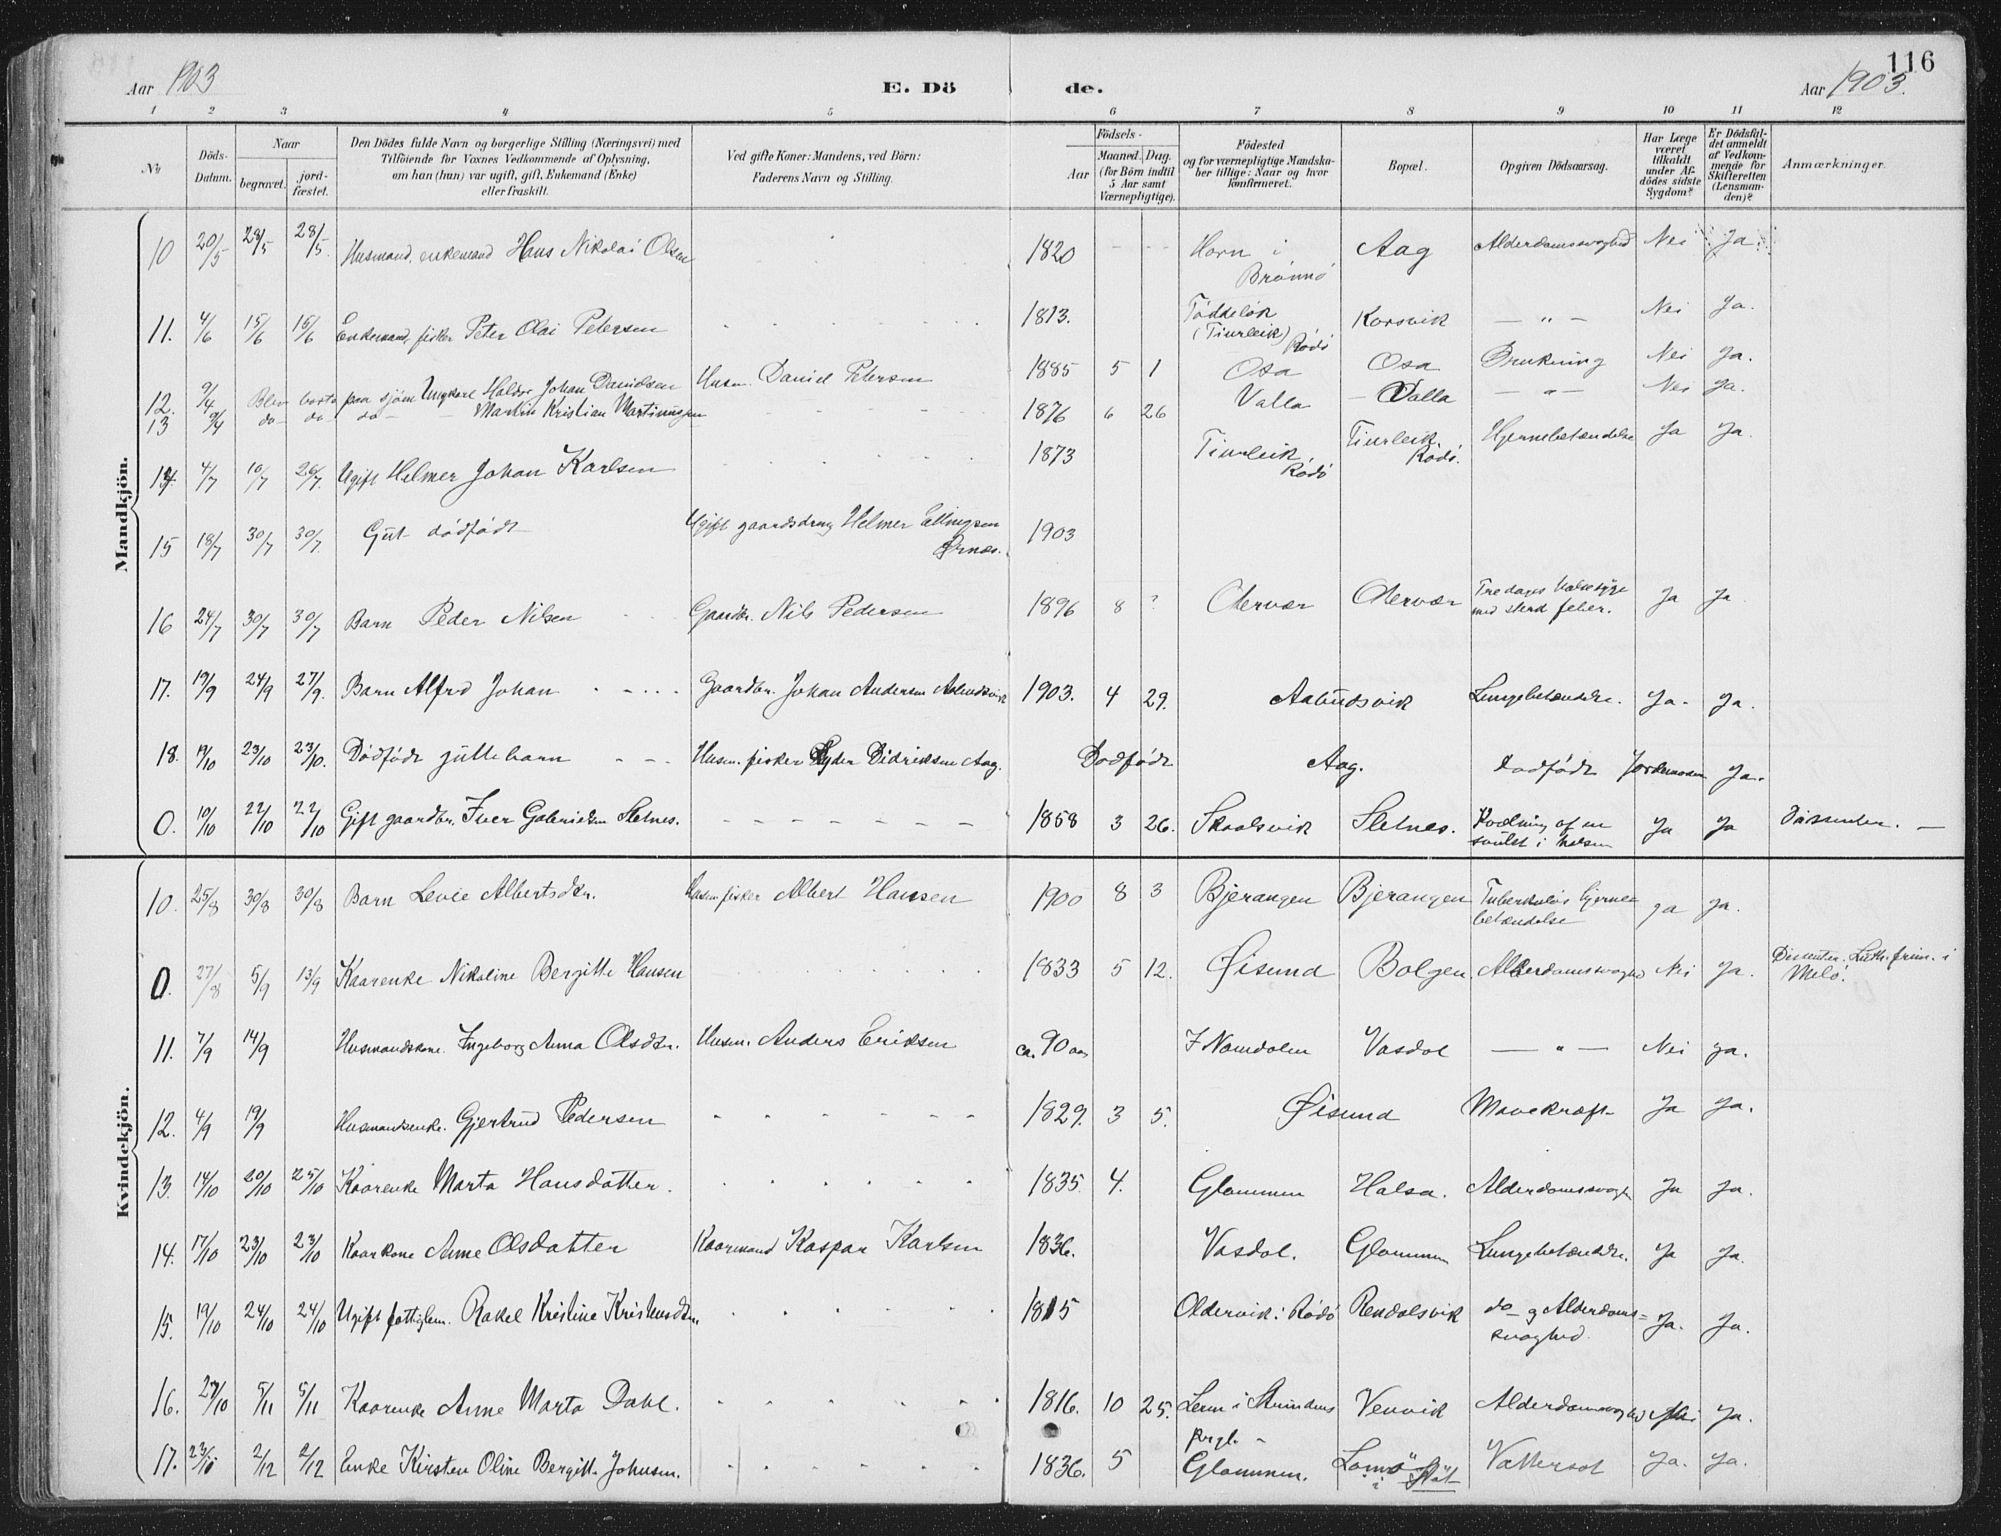 116
Aar 1903
E. Dö de.
Aar 1903.
1 2 3 4 5 6 7 8 9 10 11 12
No
Döds-Datum.
Naar
begravet.
jord-fæstet.
Den Dödes fulde Navn og borgerlige Stilling (Næringsvei) med
Tilföiende for Voxnes Vedkommende af Oplysning,
om han (hun) var ugift, gift, Enkemand (Enke)
eller fraskilt.
Ved gifte Koner: Mandens, ved Börn:
Faderens Navn og Stilling.
Födsels-
Aar
Maaned. Dag.
(for Börn indtil
5 Aar samt
Værnepligtige).
Födested
og for værnepligtige Mandska-
ber tillige: Naar og hvor
konfirmeret.
Bopæl.
Opgiven Dödsaarsag.
Har Læge
været
tilkaldt
under Af-
dödes sidste
Sygdom?
Er Dödsfal-
det anmeldt
af Vedkom-
mende for
Skifteretten
(Lensman-
den)?
Anmærkninger.
Mandkjön.
10 20/5 28/5 28/5 Husmand, enkemand Hans Nikolai Olsen 1820 Horn i Brönnö Aag Alderdomssvaghed Nei Ja.
11. 4/6 15/6 15/6 Enkemand, fisker Peter Olai Petersen 1813. (Tiurleik) Rödö Korsvik — " — Nei Ja.
12. 9/4 Blev borte paa sjøen Ungkarl Haldor Johan Danielsen Husm. Daniel Petersen 1885 5 1 Osa Osa Drukning Nei Ja.
13 9/4 do do do — Martin Kristian Martinussen 1876 6 26 Valla Valla — " — Nei Ja.
14. 4/7 10/7 26/7. Ugift Helmer Johan Karlsen 1873 Tiurleik, Rödö Tiurleik, Rödö. Hjernebetændelse Ja Ja.
15 18/7 30/7 30/7 Gut dødfødt Ugift gaardsdreng Helmer Ellingsen Ørnes. 1903
16 24/7 30/7 30/7 Barn Peder Nilsen Gaardbr. Nils Pedersen 1896 8 ? Otervær Otervær Tredages halssyge med sterk feber. Ja Ja
17. 19/9 24/9 27/9. Barn Alfred Johan Gaardbr. Johan Andersen Aalundsvik 1903. 4 29. Aalundsvik Lungebetændelse. Ja. Ja.
18. 19/10 23/10 23/10. Dødfødt guttebarn Husm. fisker Peder Didriksen Aag. Dødfødt Aag. Dødfødt Jordemoren Ja.
0. 10/10 22/10 22/10 Gift gaardbr. Iver Gabrielsen Sletnes. 1858 3 26. Skaalsvik Sletnes. Kvælning af en svulst i halsen Ja Ja Dissenter. —
Kvindekjön.
10. 25/8 30/8 30/8 Barn Levie Albertsdtr. Husm. fisker Albert Hansen 1900 8 3 Bjerangen Bjerangen Tuberkuløs hjernebetændelse Ja Ja.
0. 27/8 5/9 13/9 Kaarenke Nikoline Bergitte Hansen 1833 5 12. Øisund Bolgen Alderdomssvaghed Nei Ja. Dissenter. Luth. frim. i Melö.
11. 7/9 14/9 Husmandskone Ingeborg Anna Olsdtr. Husm. Anders Eriksen ca. 90 aar I Namdalen Vasdal — " — Nei Ja.
12. 4/9 19/9 Husmandsenke. Gjertrud Pedersen 1829. 3 5. Øisund Mavekræft Ja Ja.
13. 14/10 20/10 25/10 Kaarenke Marta Hansdatter. 1835. 4. Glommen Halsa. Alderdomssvagh. Ja Ja.
14. 17/10 23/10 23/10 Kaarkone Anne Olsdatter Kaarmand Kaspar Karlsen 1836. Vasdal. Glommen Lungebetændelse. Ja Ja.
15. 19/10 24/10 24/10 Ugift fattiglem. Rakel Kristine Kristensdtr. 1815 Oldervik i Rödö Rendalsvik do og Alderdoms= svaghed. Ja. Ja.
16. 27/10 5/11 5/11 Kaarenke Anne Marta Dahl. 1816. 10 25. i Strindens prgl. Venvik Alderdomssvaghed Nei Ja.
17. 23/11 2/12 2/12 Enke Kirsten Oline Bergitte Johnsen. 1836. 5 Glommen. Vattersot Ja. Ja.